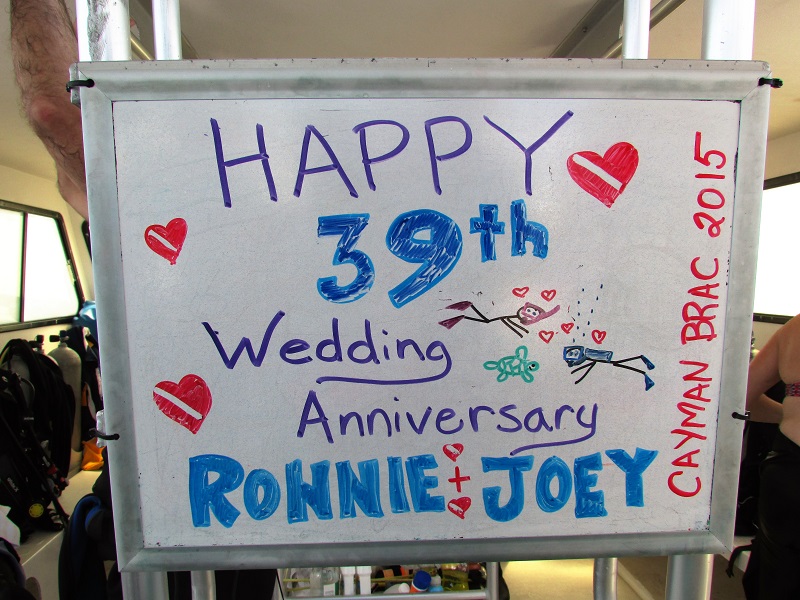 HAPPY
39th
Wedding
Anniversary
RONNIE + JOEY
CAYMAN BRAC 2015